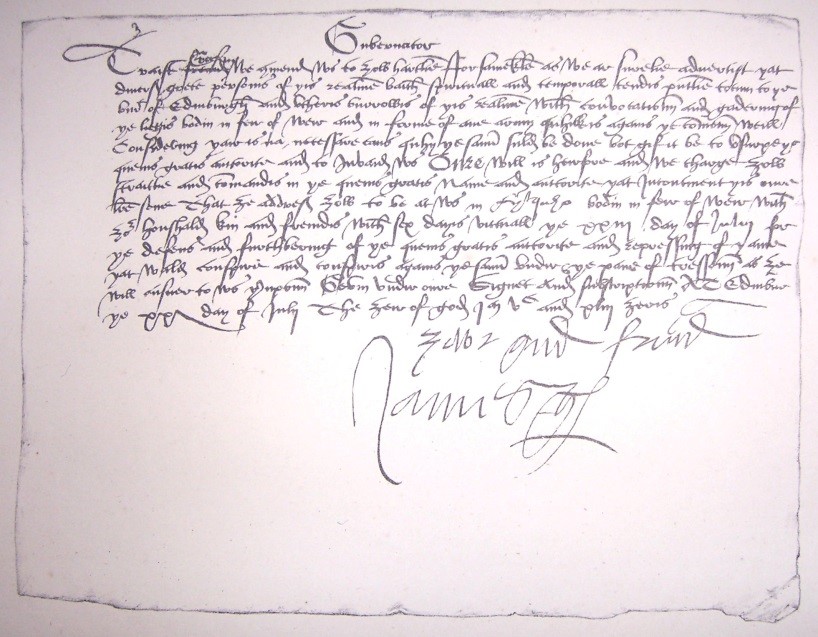 Gubernator
Traist We comend ws to zow hartlie For samekle as We ar surelie advertist yat
divers grete personis of yis realme baith spirituall and temporall tendis to cum to ye
burt of Edinburgh and utheris burrowis of yis realme With convocatioun and gadering of
ye liegis bodin in feir of Weir and in forme of ane army quhilk is aganis ye comoun Weill
Considering yair is na necessair caus quhy ye samin suld be done bot gif it be to usurpe ye
quenis gracis autorite and to Invaid ws Oure Will is heirfore and We charge zow
straitlie and comandis in ye quenis gracis Name and autorite yat Incontinent yis oure
sene That ze addres zow to be at ws in bodin in feir of Weir With
zor houshald kin and freindis With sex dayis victuall ye xxiii day of Julii for
ye defens and furthbering of ye quenis gracis autorite and repressing of yame
yat Wald conspire and conspiris aganis ye samin under ye pane of tressoun as ze
Will ansuer to ws yrupoun Gevin under oure Signet And subscriptioun At Edinbur
ye xx day of Julij The zeir of god J m vc and xliii zeris
zour gud freind
James G